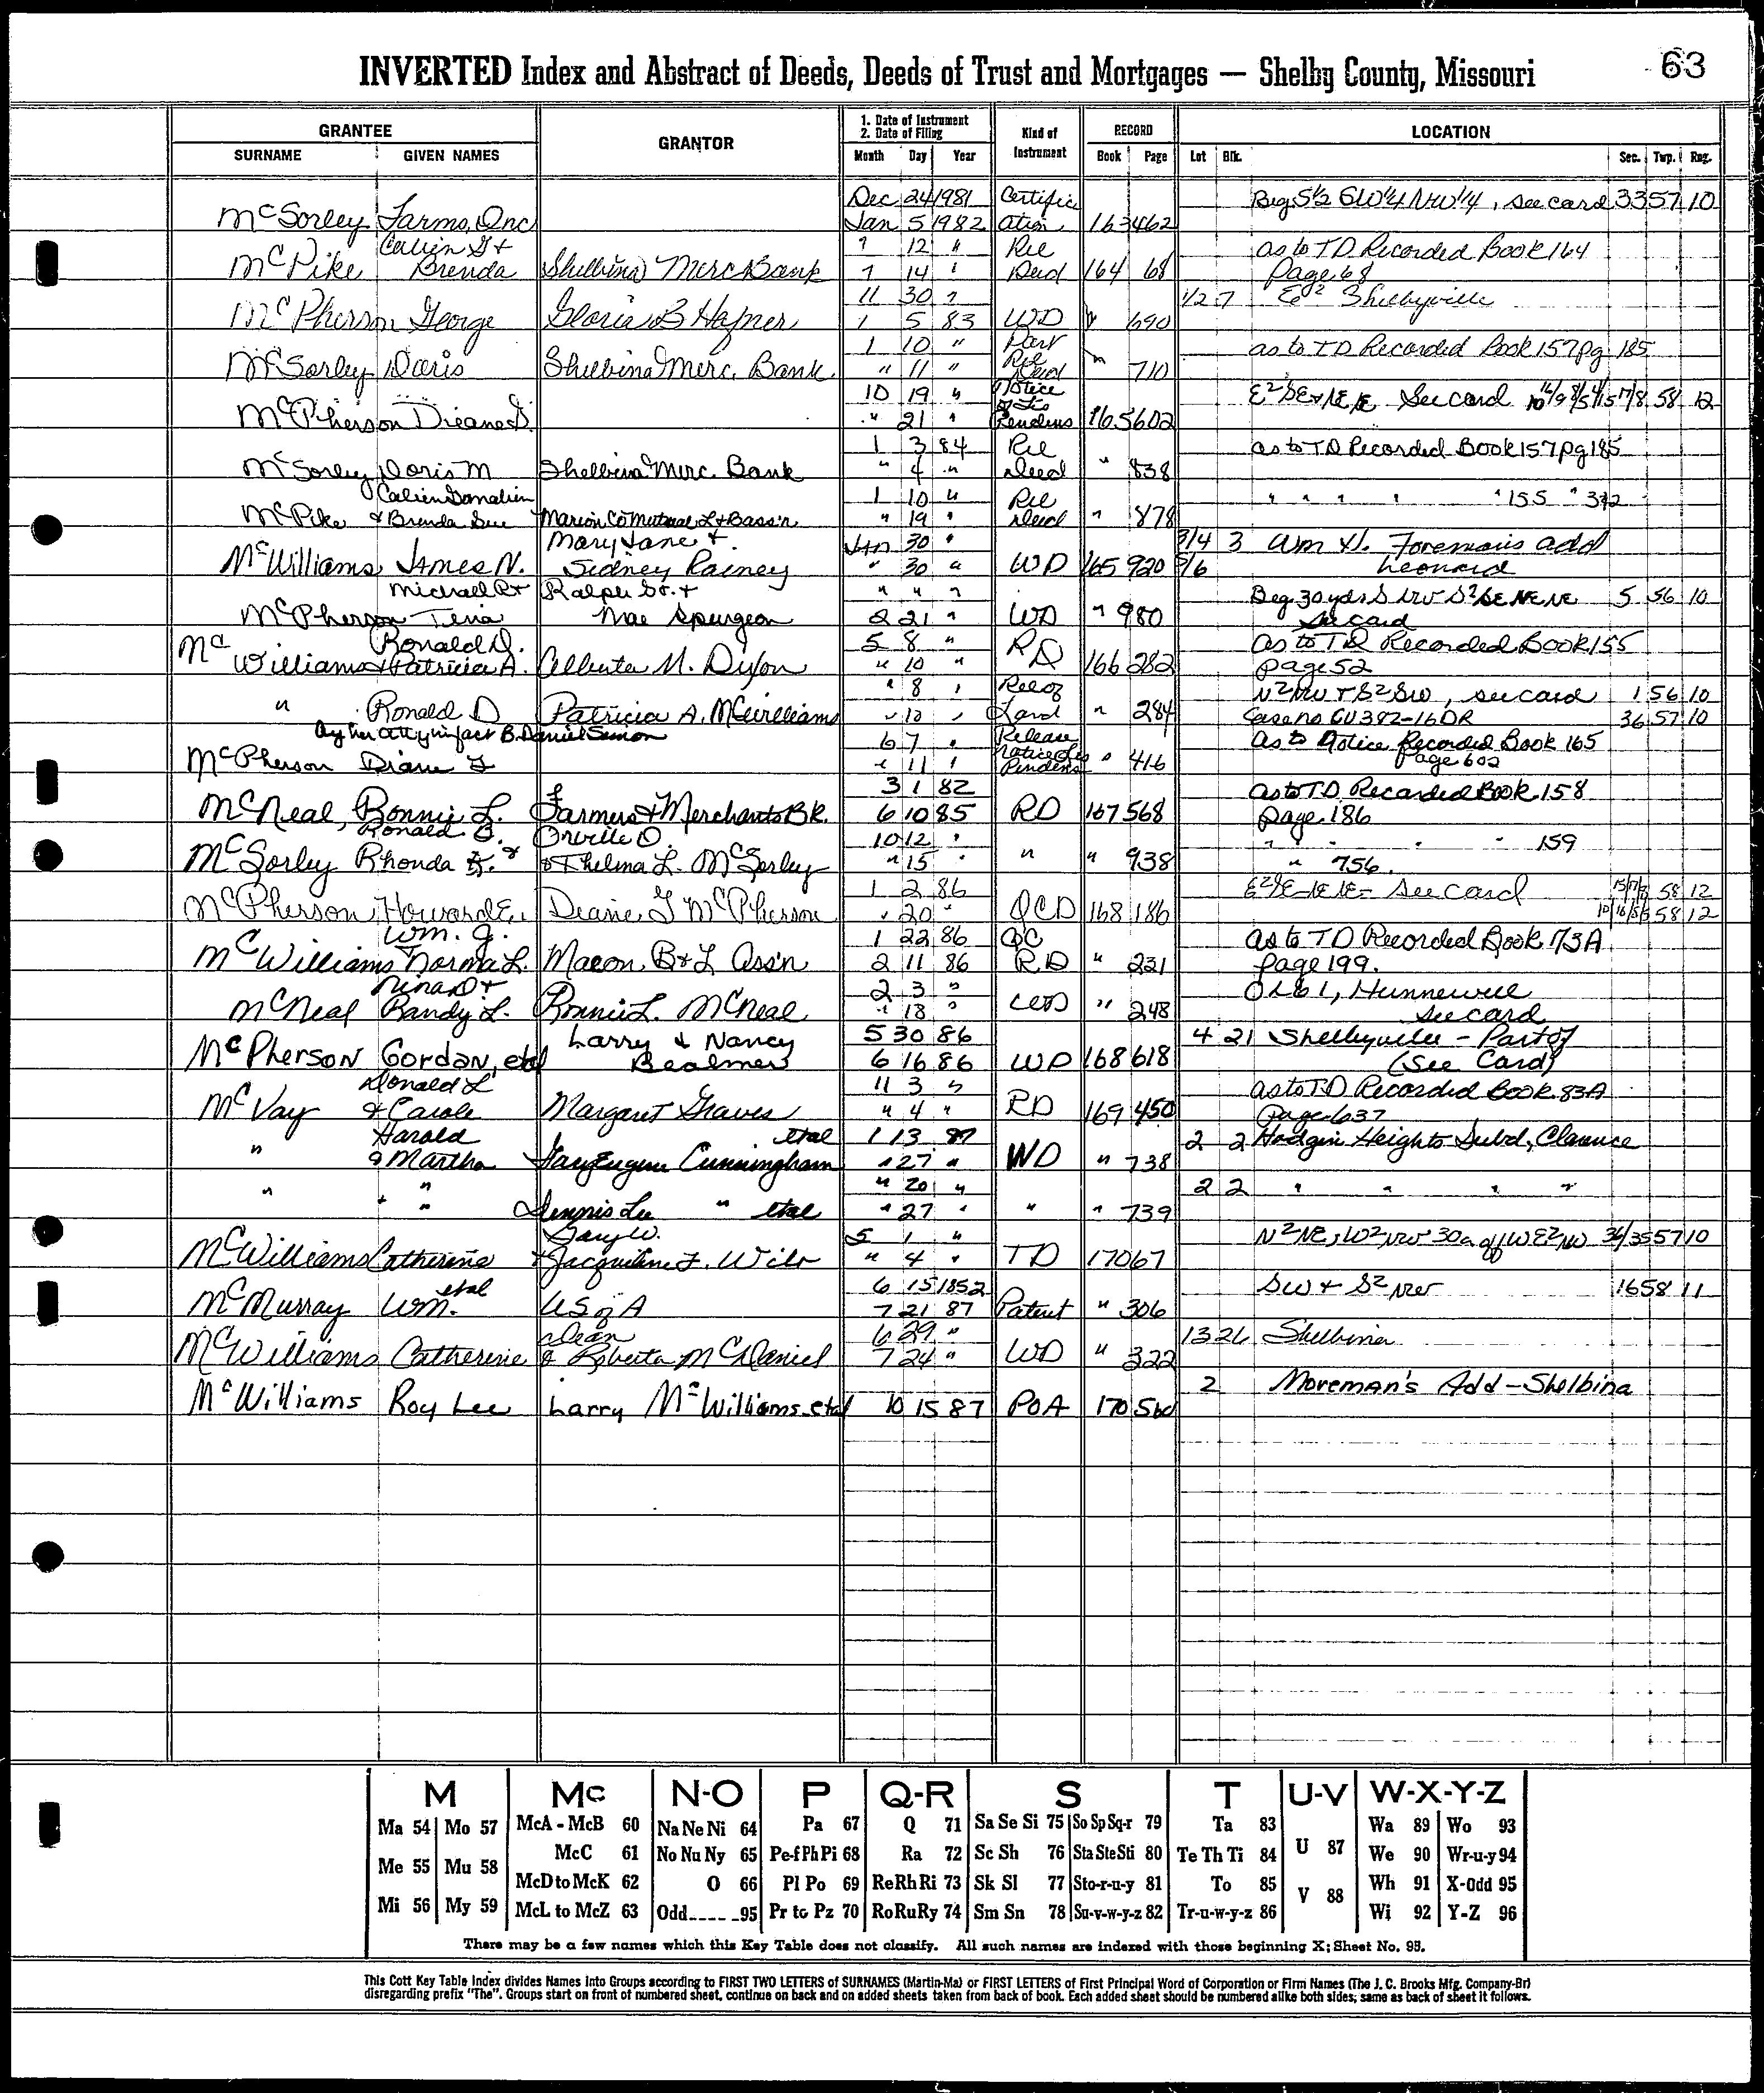 63
INVERTED Index and Abstract of Deeds, Deeds of Trust and Mortgages — Shelby County, Missouri
GRANTEE GRANTOR 1. Date of Instrument 2. Date of Filing Kind of Instrument RECORD LOCATION
SURNAME GIVEN NAMES Month Day Year Book Page Lot Blk. Sec. Twp. Rng.
Dec 24 1981 Certific Beg S½ SW¼ NW¼, see card 33 57 10
McSorley Farms, Inc Jan 5 1982 ation 163 462
Calvin G + " 12 " Rel as to TD Recorded Book 164
McPike Brenda Shelbina Merc Bank 7 14 " Deed 164 68 Page 68
11 30 " 1/2 7 E² Shelbyville
McPherson George Gloria B Hafner 1 5 83 WD " 690
1 10 " Part as to TD Recorded Book 157 pg 185
McSorley Doris Shelbina Merc. Bank " 11 " Rel Deed " 710
10 19 " Notice E² SE + NE NE See card 58 12
McPherson Dieane G. " 21 " of Lis Pendens 165 602
1 3 84 Rel as to TD Recorded Book 157 pg 185
McSorley Doris M Shelbina Merc. Bank " 4 " Deed " 838
1 10 " Rel " " " " " 155 " 372
McPike & Brenda Sue Marion Co Mutual L + B ass'n " 19 " Deed " 878
Mary Jane + Jan 30 " 3/4 3 Wm H. Foreman's add
McWilliams James N. Sidney Rainey " 30 " WD 165 920 5/6 Leonard
Michael R + Ralph Sr. + " " " Beg 30 yds S NW S² SE NE NE 5 56 10
McPherson Tina Mae Spurgeon 2 21 " WD " 980 See card
Mc Ronald D. 5 8 " RD as to TD Recorded Book 155
Williams + Patricia A. Alberta M. Dixon " 10 " 166 282 page 52
" 8 " Rel of N² NW + S² SW, see card 1 56 10
" Ronald D Patricia A. McWilliams " 10 " Land " 284 Case no CV382-16DR 36 57 10
By her atty in fact B. Daniel Simon 6 7 " Release as to Notice Recorded Book 165
McPherson Diane G " 11 " Notice Lis Pendens " 416 Page 602
3 1 82 as to TD Recorded Book 158
McNeal, Bonnie L. Farmers + Merchants BK. 6 10 85 RD 167 568 page 186
Ronald B. Orville D. 10 12 " " " " 159
McSorley Rhonda K. & + Thelma L. McSorley " 15 " " " 938 " 756
1 2 86 E² SE-NE NE- See card 58 12
McPherson, Howard E. Diane G McPherson " 20 " QCD 168 186 58 12
Wm. J. 1 22 86 QC as to TD Recorded Book 73A
McWilliams Norma L. Macon B + L Ass'n 2 11 86 RD " 231 page 199.
Nina D + 2 3 " OLB 1, Hunnewell
McNeal Randy L. Bonnie L. McNeal " 18 " WD " 248 See card
Larry & Nancy 5 30 86 4 21 Shelbyville - Part of
McPherson Gordan, etal Bealmer 6 16 86 WD 168 618 (See Card)
Donald L 11 3 " as to TD Recorded Book 83A
McVay & Carole Margaret Graves " 4 " RD 169 450 Page 637
Harold etal 1 13 87 2 2 Hodgin Heights Subd, Clarence
" & Martha Gary Eugene Cunningham " 27 " WD " 738
" 20 " 2 2 " " " "
" + " Dennis Lee " etal " 27 " " " 739
Gary W. 5 1 " N² NE, W² NW 30a off W E² NW 36/35 57 10
McWilliams Catherine + Jacqueline F. Wilr " 4 " TD 170 67
etal 6 15 1852 SW + S² NW 16 58 11
McMurray Wm. US of A 7 21 87 Patent " 306
Dean 6 29 " 13 26 Shelbina
McWilliams Catherine & Roberta McDaniel 7 24 " WD " 322
2 Moreman's Add - Shelbina
McWilliams Roy Lee Larry McWilliams etal 10 15 87 POA 170 560
M Mc N-O P Q-R S T U-V W-X-Y-Z
Ma 54 Mo 57 McA - McB 60 Na Ne Ni 64 Pa 67 Q 71 Sa Se Si 75 So Sp Sq-r 79 Ta 83 U 87 Wa 89 Wo 93
Me 55 Mu 58 McC 61 No Nu Ny 65 Pe-f Ph Pi 68 Ra 72 Sc Sh 76 Sta Ste Sti 80 Te Th Ti 84 We 90 Wr-u-y 94
McD to McK 62 O 66 Pl Po 69 Re Rh Ri 73 Sk Sl 77 Sto-r-u-y 81 To 85 V 88 Wh 91 X-Odd 95
Mi 56 My 59 McL to McZ 63 Odd 95 Pr to Pz 70 Ro Ru Ry 74 Sm Sn 78 Su-v-w-y-z 82 Tr-u-w-y-z 86 Wi 92 Y-Z 96
There may be a few names which this Key Table does not classify. All such names are indexed with those beginning X; Sheet No. 95.
This Cott Key Table Index divides Names into Groups according to FIRST TWO LETTERS of SURNAMES (Martin-Ma) or FIRST LETTERS of First Principal Word of Corporation or Firm Names (The J. C. Brooks Mfg. Company-Br)
disregarding prefix "The". Groups start on front of numbered sheet, continue on back and on added sheets taken from back of book. Each added sheet should be numbered alike both sides; same as back of sheet it follows.